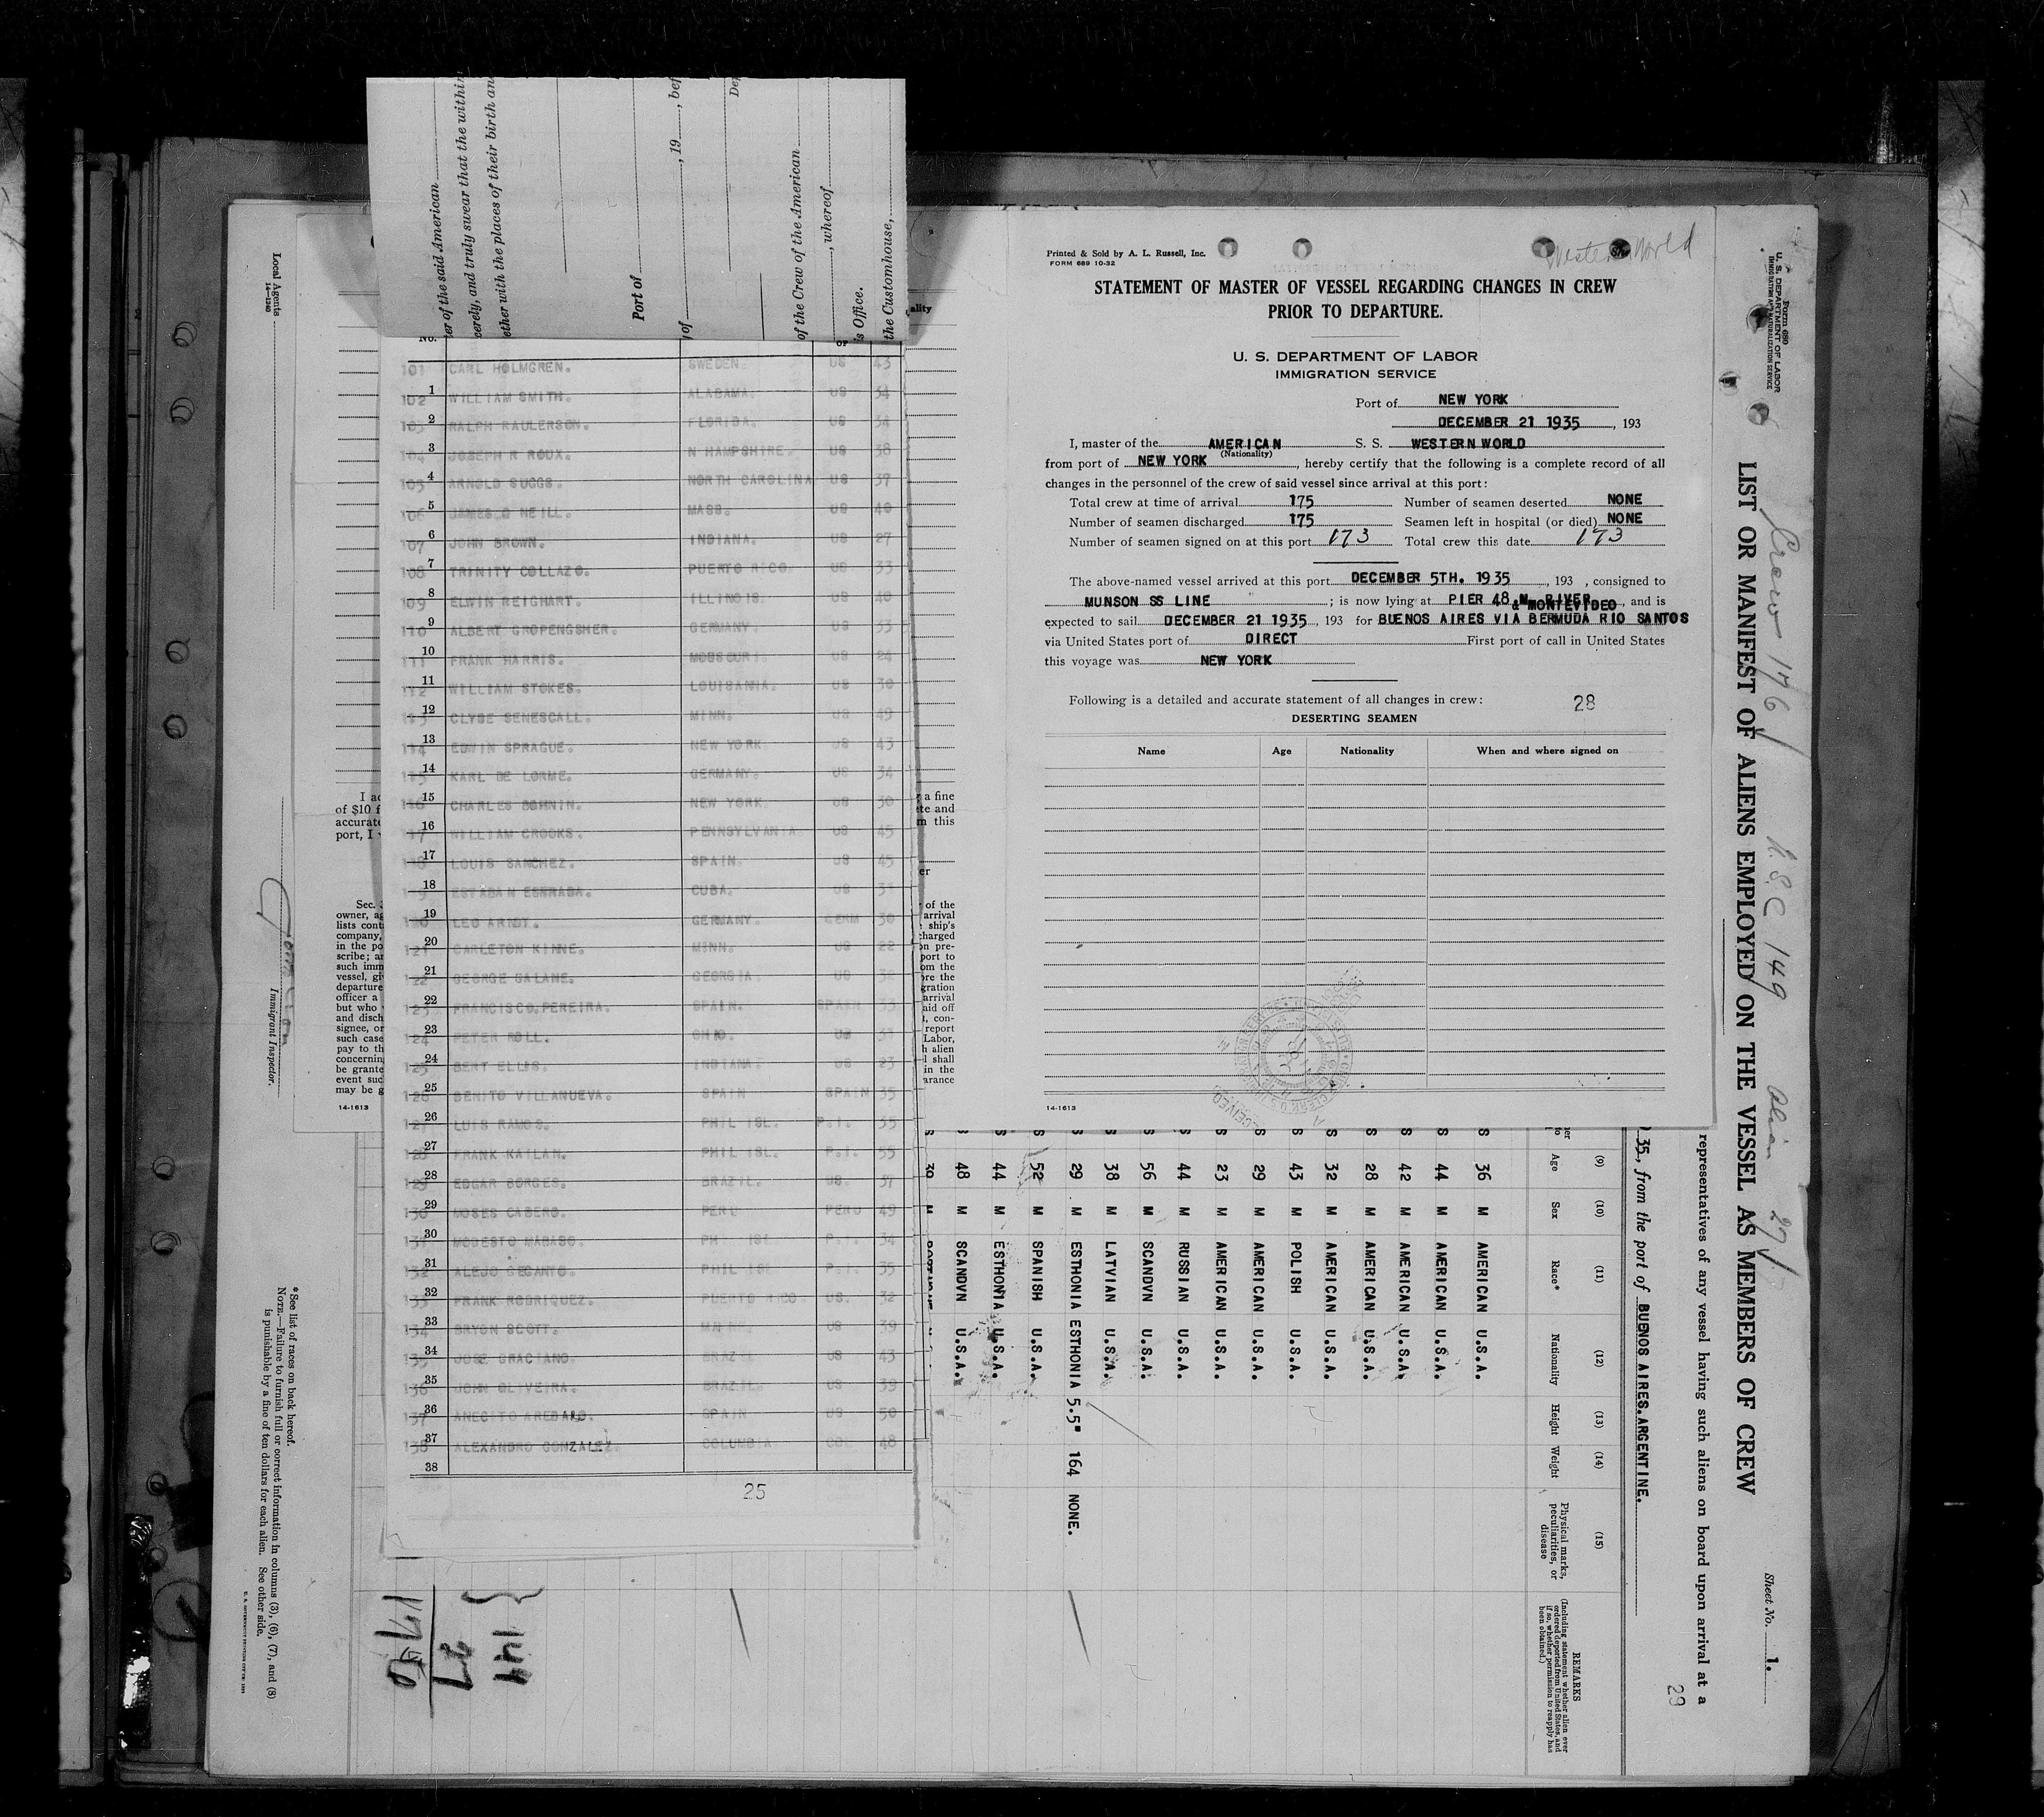 er of the said American
cerely, and truly swear that the within
ether with the places of their birth an
Port of
of , 19 , bef
Dep
of the Crew of the American
, whereof
is Office.
the Customhouse,
No.
101 CARL HOLMGREN. SWEDEN. US 43
1 102 WILLIAM SMITH. ALABAMA. US 34
2 103 RALPH RAULERSON. FLORIDA. US 34
3 104 JOSEPH R ROUX. N HAMPSHIRE. US 38
4 105 ARNOLD SUGGS. NORTH CAROLINA US 37
5 106 JAMES O NEILL. MASS. US 40
6 107 JOHN BROWN. INDIANA. US 27
7 108 TRINITY COLLAZO. PUERTO RICO. US 33
8 109 ELWIN REIGHART. ILLINOIS. US 40
9 110 ALBERT GROPENGSHER. GERMANY. US 33
10 111 FRANK HARRIS. US 24
11 112 WILLIAM STOKES. LOUISANNA. US 30
12 113 CLYDE SENESCALL. MINN. US 49
13 114 EDWIN SPRAGUE. NEW YORK. US 43
14 115 KARL DE LORME. GERMANY. US 34
15 116 CHARLES BOHNIN. NEW YORK. US 30
16 117 WILLIAM CROOKS. PENNSYLVANIA. US 45
17 118 LOUIS SANCHEZ. SPAIN. US 45
18 119 ESTABAN CUBA. US
19 120 LEO ARNDT. GERMANY. GERM 30
20 121 CARLETON KINNE. MINN. US 22
21 122 GEORGE GALANE. GEORGIA. US
22 123 FRANCISCO.PEREIRA. SPAIN. SPAIN 33
23 124 PETER ROLL. OHIO. US
24 125 BERT ELLIS. INDIANA. US 23
25 126 BENITO VILLANUEVA. SPAIN SPAIN 35
26 127 LUIS RAMOS. PHIL ISL. P.I. 35
27 128 FRANK KAILAN. PHIL ISL. P.I. 55
28 129 EDGAR BORGES. BRAZIL. US. 37
29 130 MOSES CABERO. PERU PERU 49
30 131 MODESTO MABASO. PHIL ISL P.I. 34
31 132 ALEJO SEGANTO. PHIL ISL P.I. 35
32 133 FRANK RODRIQUEZ. PUERTO RICO US. 32
33 134 BRYON SCOTT. US 39
34 135 JOSE GRACIANO. BRAZIL US 43
35 136 JOHN OLIVEIRA. BRAZIL. US 39
36 137 ANECITO AREBALO. SPAIN US 50
37 138 ALEXANDRO GONZALEZ. COLUMBIA COL 48
38
25
Western World
Printed & Sold by A. L. Russell, Inc.
FORM 689 10-32
STATEMENT OF MASTER OF VESSEL REGARDING CHANGES IN CREW
PRIOR TO DEPARTURE.
U. S. DEPARTMENT OF LABOR
IMMIGRATION SERVICE
Port of NEW YORK
DECEMBER 21 1935 , 193
I, master of the AMERICAN S. S. WESTERN WORLD
(Nationality)
from port of NEW YORK , hereby certify that the following is a complete record of all
changes in the personnel of the crew of said vessel since arrival at this port:
Total crew at time of arrival 175 Number of seamen deserted NONE
Number of seamen discharged 175 Seamen left in hospital (or died) NONE
Number of seamen signed on at this port 173 Total crew this date 173
The above-named vessel arrived at this port DECEMBER 5TH. 1935 , 193 , consigned to
MUNSON SS LINE ; is now lying at PIER 48 N. RIVER , and is
& MONTEVIDEO
expected to sail DECEMBER 21 1935 , 193 for BUENOS AIRES VIA BERMUDA RIO SANTOS
via United States port of DIRECT First port of call in United States
this voyage was NEW YORK
Following is a detailed and accurate statement of all changes in crew:
28
DESERTING SEAMEN
Name Age Nationality When and where signed on
14-1613
Form 680
U. S. DEPARTMENT OF LABOR
IMMIGRATION AND NATURALIZATION SERVICE
LIST OR MANIFEST OF ALIENS EMPLOYED ON THE VESSEL AS MEMBERS OF CREW
Crew 176 U.S.C 149 Alien 27
Sheet No. 1.
representatives of any vessel having such aliens on board upon arrival at a
35, from the port of BUENOS AIRES.ARGENTINE.
29
(9) (10) (11) (12) (13) (14) (15)
Age Sex Race* Nationality Height Weight Physical marks, peculiarities, or disease
REMARKS
(Including statement whether alien ever ordered deported from United States, and if so, whether permission to reapply has been obtained.)
36 M AMERICAN U.S.A.
44 M AMERICAN U.S.A.
42 M AMERICAN U.S.A.
28 M AMERICAN U.S.A.
32 M AMERICAN U.S.A.
43 M POLISH U.S.A.
29 M AMERICAN U.S.A.
23 M AMERICAN U.S.A.
44 M RUSSIAN U.S.A.
56 M SCANDVN U.S.A.
38 M LATVIAN U.S.A.
29 M ESTHONIA ESTHONIA 5.5" 164 NONE.
52 M SPANISH U.S.A.
44 M ESTHONIA U.S.A.
48 M SCANDVN U.S.A.
39 M
149
27
*See list of races on back hereof.
NOTE.—Failure to furnish full or correct information in columns (3), (6), (7), and (8)
is punishable by a fine of ten dollars for each alien. See other side.
Local Agents
14-1240
Immigrant Inspector.
I ac
of $10 f
accurate
port, I
a fine
te and
m this
er
Sec.
owner, ag
lists cont
company,
in the po
scribe; an
such imm
vessel, gi
departure
officer a
but who
and disch
signee, or
such case
pay to th
concerning
be grante
event suc
may be g
14-1613
of the
arrival
ship's
charged
on pre-
port to
om the
ore the
gration
arrival
aid off
, con-
report
Labor,
h alien
l shall
in the
arance
ality